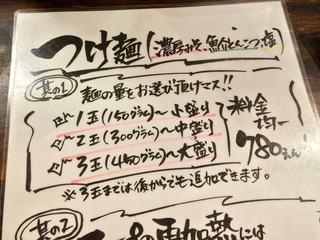 つけ麺(濃厚みそ、魚介とんこつ、塩)
其の1 麺の量をお選び頂けマス!!
1玉(150グラム)〜小盛り
2玉(300グラム)〜中盛り
3玉(450グラム)〜大盛り
料金均一780えん
※3玉までは後からでも追加できます。
其の2